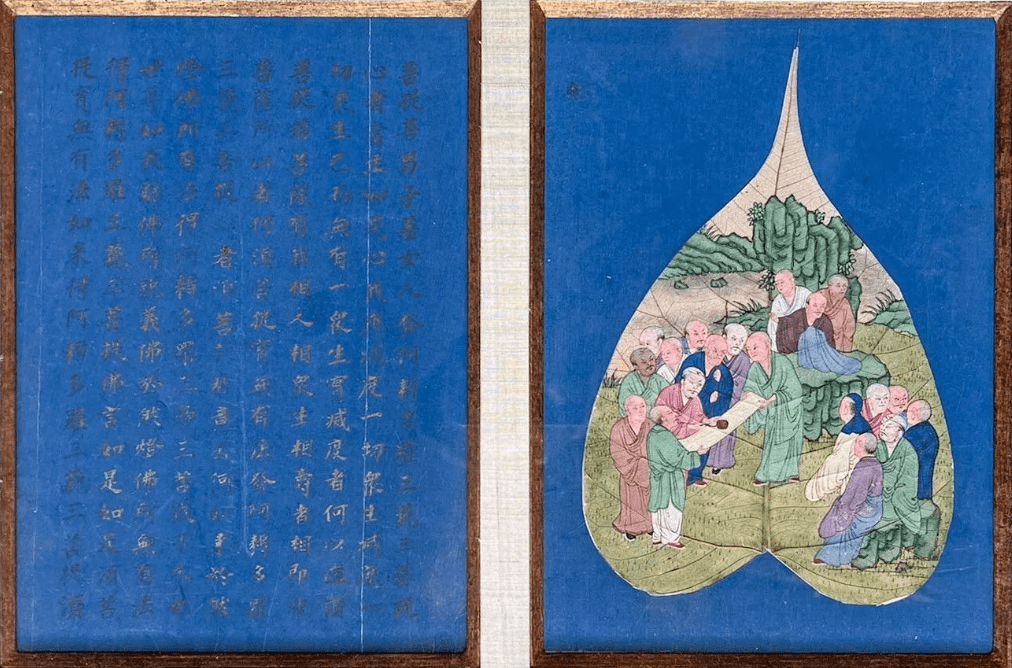 菩提善男子善女人發阿耨多羅三藐三菩提
心者當生如是心我應滅度一切衆生滅度一
切衆生已而無有一衆生實滅度者何以故須
菩提若菩薩有我相人相衆生相壽者相即非
菩薩所以者何須菩提實無有法發阿耨多羅
三藐三菩提者須菩於意云何如來於然
燈佛所有法得阿耨多羅三藐三菩提不不也
世尊如我解佛所說義佛於然燈佛所無有法
得阿耨多羅三藐三菩提佛言如是如是須菩
提實無有法如來得阿耨多羅三藐三菩提須